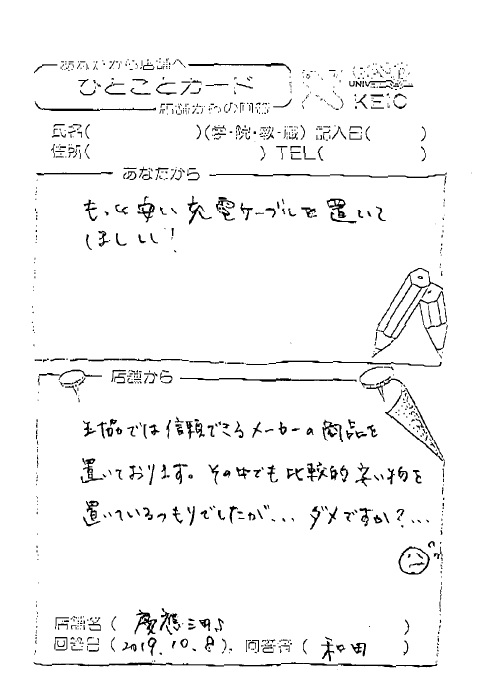 あなたから店舗へ
ひとことカード
店舗からの回答
UNIV
KEIO
氏名( )(学・院・教・職) 記入日( )
住所( ) TEL( )
あなたから
もっと安い充電ケーブルを置いて
ほしい!
店舗から
生協では信頼できるメーカーの商品を
置いております。その中でも比較的安い物を
置いているつもりでしたが... ダメですか?...
店舗名( 慶應三田 )
回答日(2019.10.8). 回答者( 和田 )